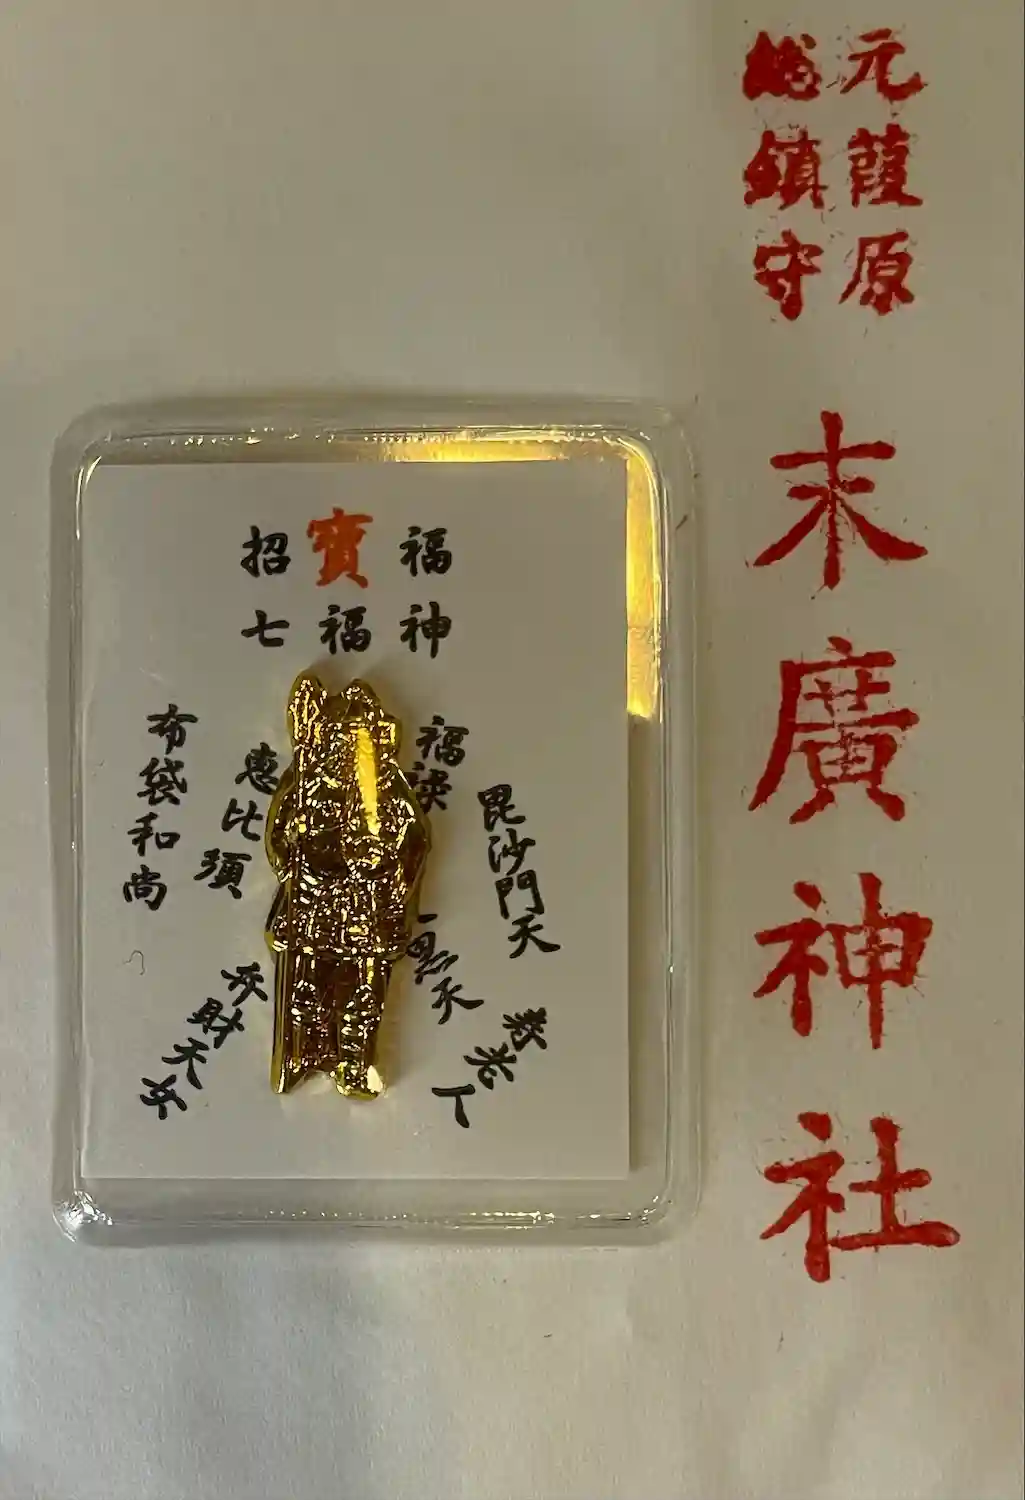 元葭原
総鎮守
末廣神社
招寳福
七福神
福禄
毘沙門天
恵比須
布袋和尚
大黒天
寿老人
弁財天女